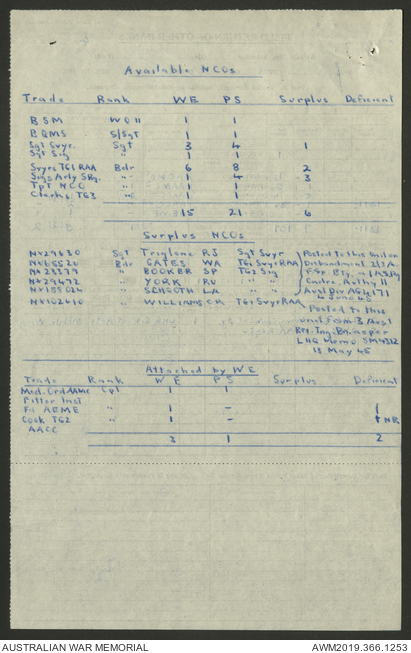 Available NCOs
Trade Rank WE PS Surplus Deficient
BSM WO II 1 1
BQMS S/Sgt 1 1
Sgt Svyr. Sgt 3 4 1
Sgt Sig " 1 1
Svyrs TG1 RAA Bdr 6 8 2
Sigs Arty Sig. " 1 4 3
Tpt NCO " 1 1
Clerks TG3 " 1 1
15 21 6
Surplus NCOs
Sgt Triglone RJ Sgt Svyr Posted to this Unit on
Bdr GATES WA TG1 Svyr RAA Disbandment 2/3 A.
NX23379 " BOOKER SP TG2 Sig
NX29472 " YORK RV " Cadre. Auth 11
" LA " Aust Div AG
4 June 45
NX102610 " WILLIAMS CR TG1 Svyr RAA
Posted to this
unit from 3 Aust
as per
LHQ Memo SM4312
18 May 45
Attached by WE
Trade Rank WE PS Surplus Deficient
Med. Ord AAMC Cpl 1 1
Fitter Inst
Fd AEME " 1 – 1
Cook TG2 " 1 – 1 NR
AACC
3 1 2
AUSTRALIAN WAR MEMORIAL AWM2019.366.1253